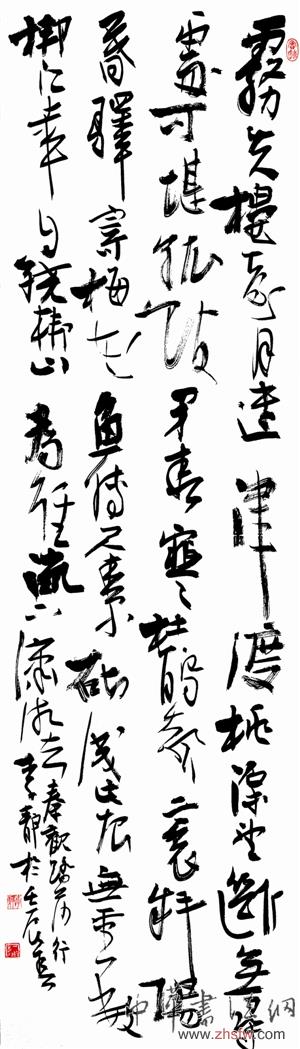 霧失樓台月迷津渡桃源望断無尋
處可堪孤館閉春寒杜鹃聲裏斜陽
暮驛寄梅花魚傳尺素砌成此恨無重數
郴江幸自繞郴山為誰流下瀟湘去
秦觀踏莎行
李靜於壬辰
中華書法網
http://www.zhsfw.com